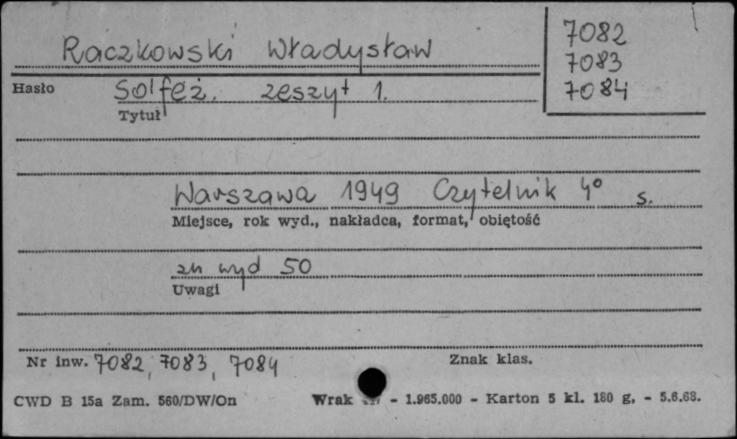 Raczkowski Władysław
7082
7083
7084
Hasło
Solfeż. zeszyt 1.
Tytuł
Warszawa 1949 Czytelnik 4° s.
Miejsce, rok wyd., nakładca, format, objętość
zn wyd 50
Uwagi
Nr inw. 7082, 7083, 7084
Znak klas.
CWD B 15a Zam. 560/DW/On Wrak - 1.965.000 - Karton 5 kl. 180 g. - 5.6.68.